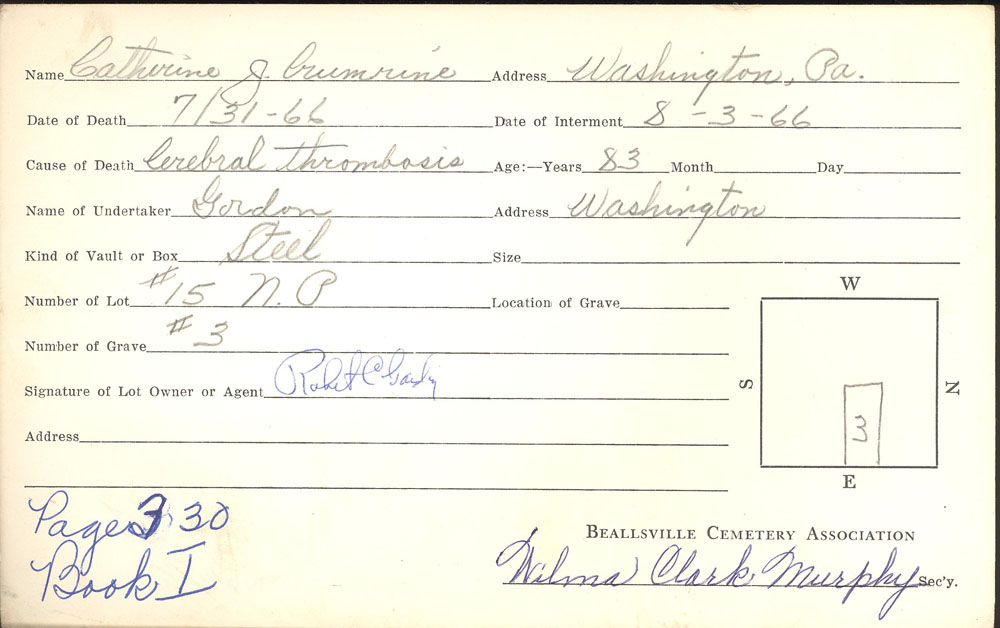 Name Catherine J. Crumrine Address Washington, Pa.
Date of Death 7/31-66 Date of Interment 8-3-66
Cause of Death Cerebral thrombosis Age:—Years 83 Month Day
Name of Undertaker Gordon Address Washington
Kind of Vault or Box Steel Size
Number of Lot #15 N.P Location of Grave
Number of Grave #3
Signature of Lot Owner or Agent Robert C
Address
W
S
N
3
E
Page 330
Book I
BEALLSVILLE CEMETERY ASSOCIATION
Wilma Clark Murphy Sec'y.